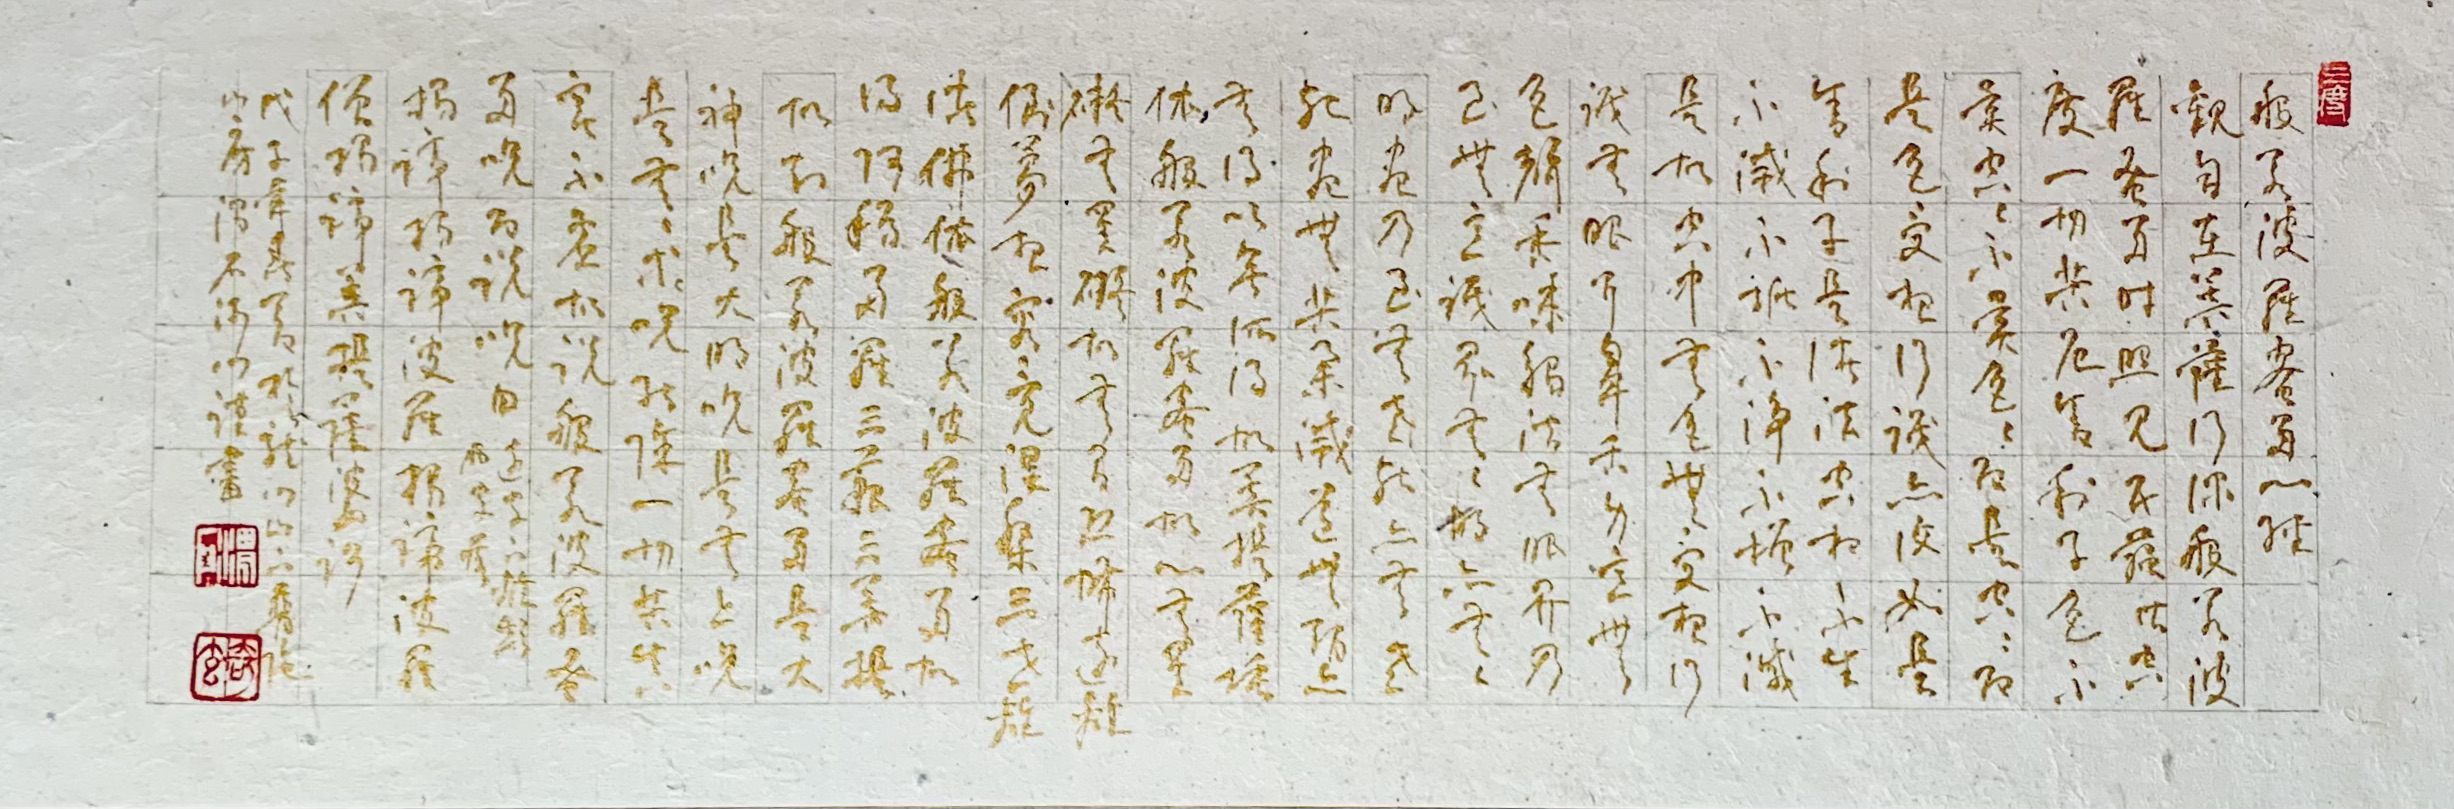 般若波羅蜜多心經
觀自在菩薩行深般若波
羅蜜多時照見五蘊皆空
度一切苦厄舍利子色不
異空〻不異色〻即是空〻即
是色受想行識亦復如是
舍利子是諸法空相不生
不滅不垢不淨不增不減
是故空中無色無受想行
識無眼耳鼻舌身意無
色聲香味觸法無眼界乃
至無意識界無〻明亦無〻
明盡乃至無老死亦無老
死盡無苦集滅道無智亦
無得以無所得故菩提薩埵
依般若波羅蜜多故心無罣
礙無罣礙故無有恐怖遠離
倒夢想究竟涅槃三世
諸佛依般若波羅蜜多故
得阿耨多羅三藐三菩提
故知般若波羅蜜多是大
神咒是大明咒是無上咒
是無〻等咒能除一切苦真
實不虛故說般若波羅蜜
多咒即說咒曰
遠字下離顛
兩字落
揭諦揭諦波羅揭諦波羅
僧揭諦菩提薩婆訶
戊子年 於龍門山下
謹書